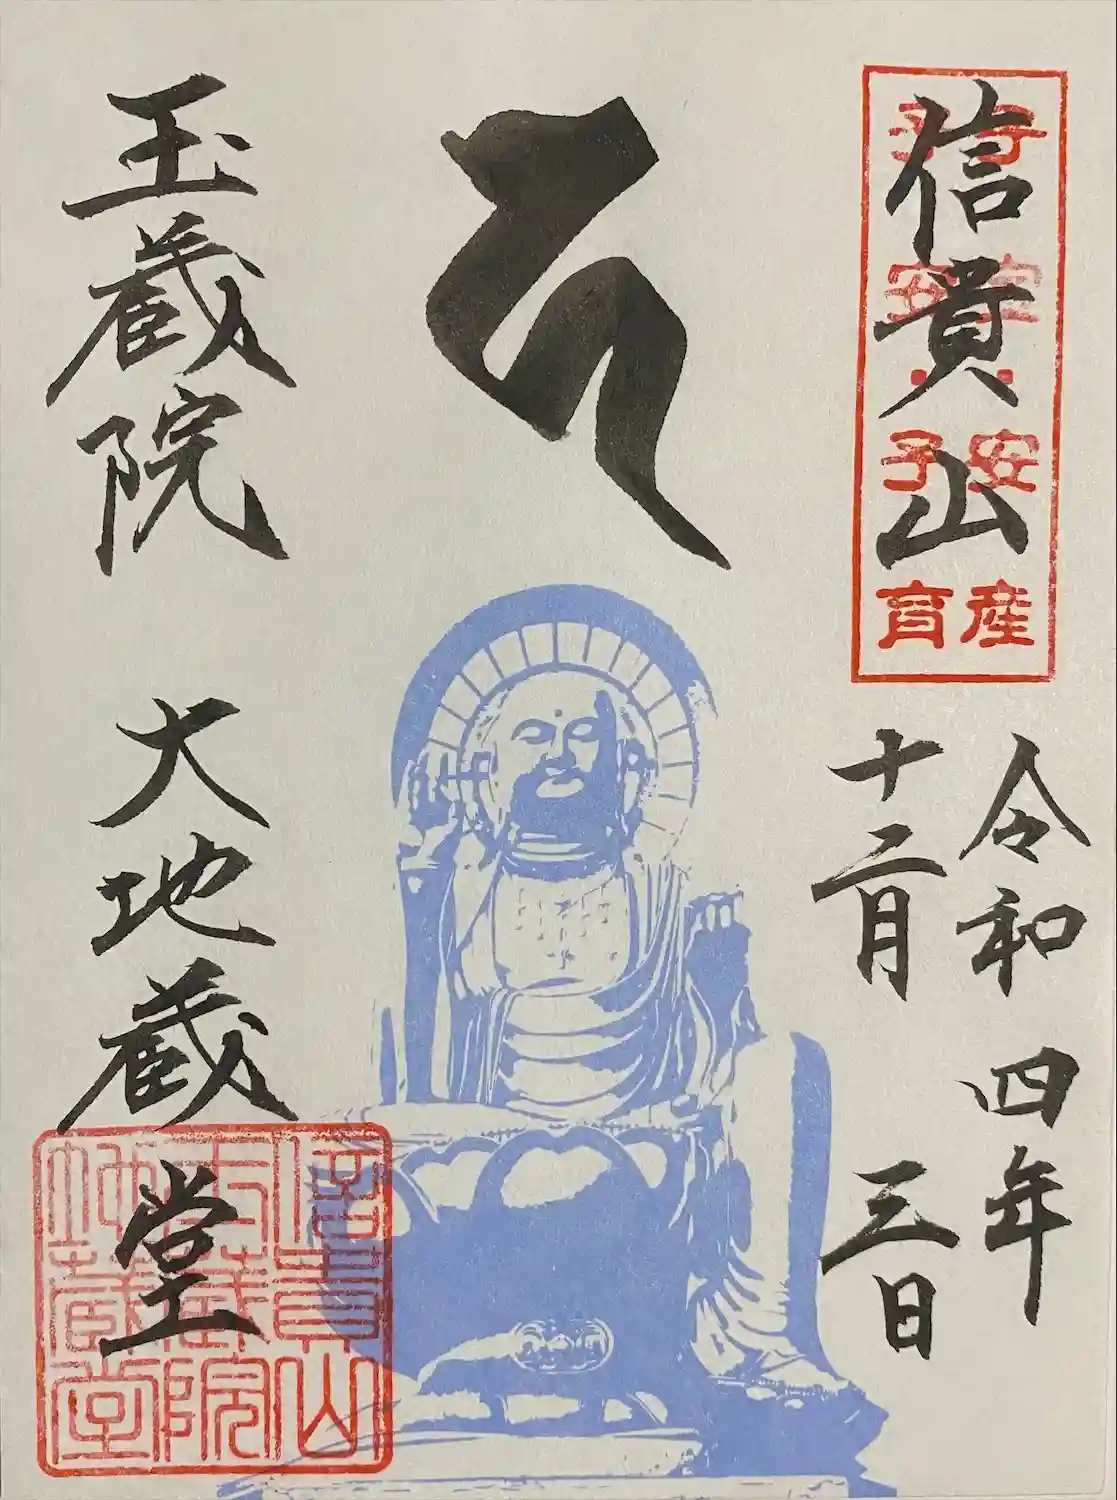 信貴山
子安・安産
子安・子育
令和四年
十二月三日
𑖮
玉蔵院 大地蔵堂
信貴山
玉蔵院
地蔵堂